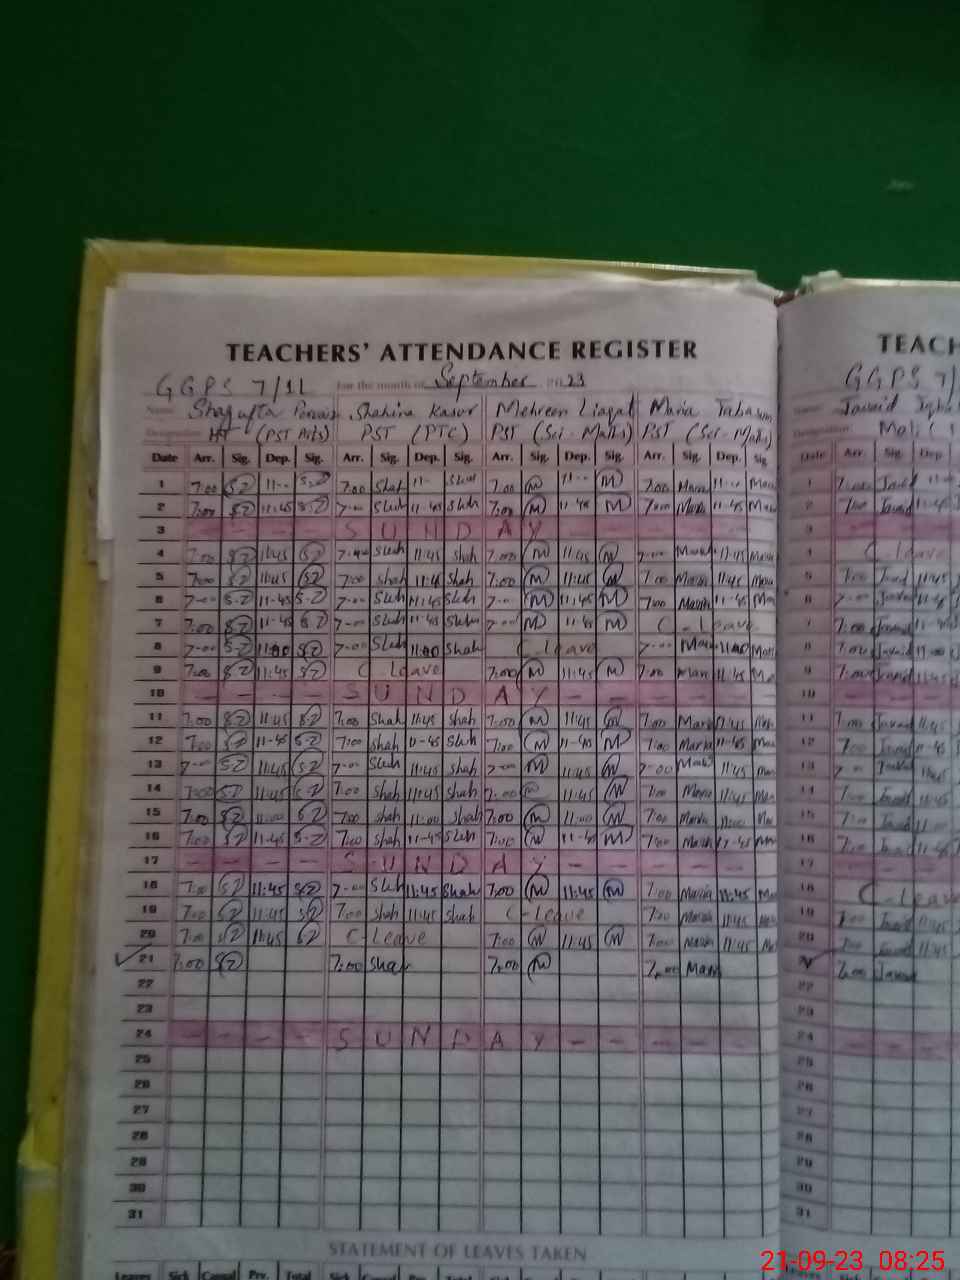 TEACHERS' ATTENDANCE REGISTER TEACH
GGPS 7/1L For the month of September 2023 GGPS 7/
Name Shagufta Parvais Shahina Kasur Mehreen Liaqat Maria Tabasum Name Javaid Iqba
Designation HT (PST Arts) PST (PTC) PST (Sci-Maths) PST (Sci-Maths) Designation Mali
Date Arr. Sig. Dep. Sig. Arr. Sig. Dep. Sig. Arr. Sig. Dep. Sig. Arr. Sig. Dep. Sig Date Arr. Sig. Dep
1 7:00 SZ 11-- SZ 7:00 Shah 11- Shah 7:00 M 11-- M 7:00 Maria 11-- 1 7:00 Javaid
2 7:00 SZ 11:45 SZ 7-00 Shah 11-45 Shah 7:00 M 11-45 M 7:00 Maria 11-45 2 7:00 Javaid
3 - - - - S U N D A Y - - - - - - 3 - - -
4 7:00 SZ 11:45 SZ 7-00 Shah 11:45 Shah 7:00 M 11:45 M 7-00 Maria 11:45 4 C-Leave
5 7:00 SZ 11:45 SZ 7:00 Shah 11:45 Shah 7:00 M 11:45 M 7:00 Maria 11:45 5 7:00 Javaid 11:45
6 7-00 SZ 11-45 SZ 7-00 Shah 11:45 Shah 7-00 M 11:45 M 7:00 Maria 11-45 6 7-00 Javaid 11-45
7 7:00 SZ 11-45 SZ 7-00 Shah 11-45 Shah 7-00 M 11-45 M C-Leave 7 7:00 Javaid 11-45
8 7-00 SZ 11:00 SZ 7-00 Shah 11:00 Shah C-Leave 7-00 Maria 11:00 8 7:00 Javaid 11:00
9 7:00 SZ 11:45 SZ C-Leave 7:00 M 11:45 M 7:00 Maria 11:45 9 7:00 Javaid 11:45
10 - - - - S U N D A Y - - - - - - 10 - - -
11 7:00 SZ 11:45 SZ 7:00 Shah 11:45 Shah 7:00 M 11:45 M 7:00 Maria 11:45 11 7:00 Javaid 11:45
12 7:00 SZ 11-45 SZ 7:00 Shah 11-45 Shah 7:00 M 11-45 M 7:00 Maria 11-45 12 7:00 Javaid 11-45
13 7-00 SZ 11:45 SZ 7-00 Shah 11:45 Shah 7-00 M 11:45 M 7-00 Maria 11:45 13 7-00 Javaid 11:45
14 7:00 SZ 11:45 SZ 7:00 Shah 11:45 Shah 7:00 11:45 M 7:00 Maria 11:45 14 7:00 Javaid 11:45
15 7:00 SZ 11:00 SZ 7:00 Shah 11:00 Shah 7:00 M 11:00 M 7:00 Maria 11:00 15 7:00 Javaid 11:00
16 7:00 SZ 11-45 SZ 7:00 Shah 11-45 Shah 7:00 M 11-45 M 7:00 Maria 11-45 16 7:00 Javaid 11-45
17 - - - - S U N D A Y - - - - - - 17 - - -
18 7:00 SZ 11:45 SZ 7-00 Shah 11:45 Shah 7:00 M 11:45 M 7:00 Maria 11:45 18 C-Leave
19 7:00 SZ 11:45 SZ 7:00 Shah 11:45 Shah C-Leave 7:00 Maria 11:45 19 7:00 Javaid 11:45
20 7:00 SZ 11:45 SZ C-Leave 7:00 M 11:45 M 7:00 Maria 11:45 20 7:00 Javaid 11:45
21 7:00 SZ 7:00 Shah 7:00 M 7:00 Maria 7:00 Javaid
22 22
23 23
24 - - - - S U N D A Y - - - - - - 24 - - -
25 25
26 26
27 27
28 28
29 29
30 30
31 31
STATEMENT OF LEAVES TAKEN
Leaves Sick Casual Prv. Total Sick Casual Prv. Total Sick Casual Prv. Total Sick
21-09-23 08:25